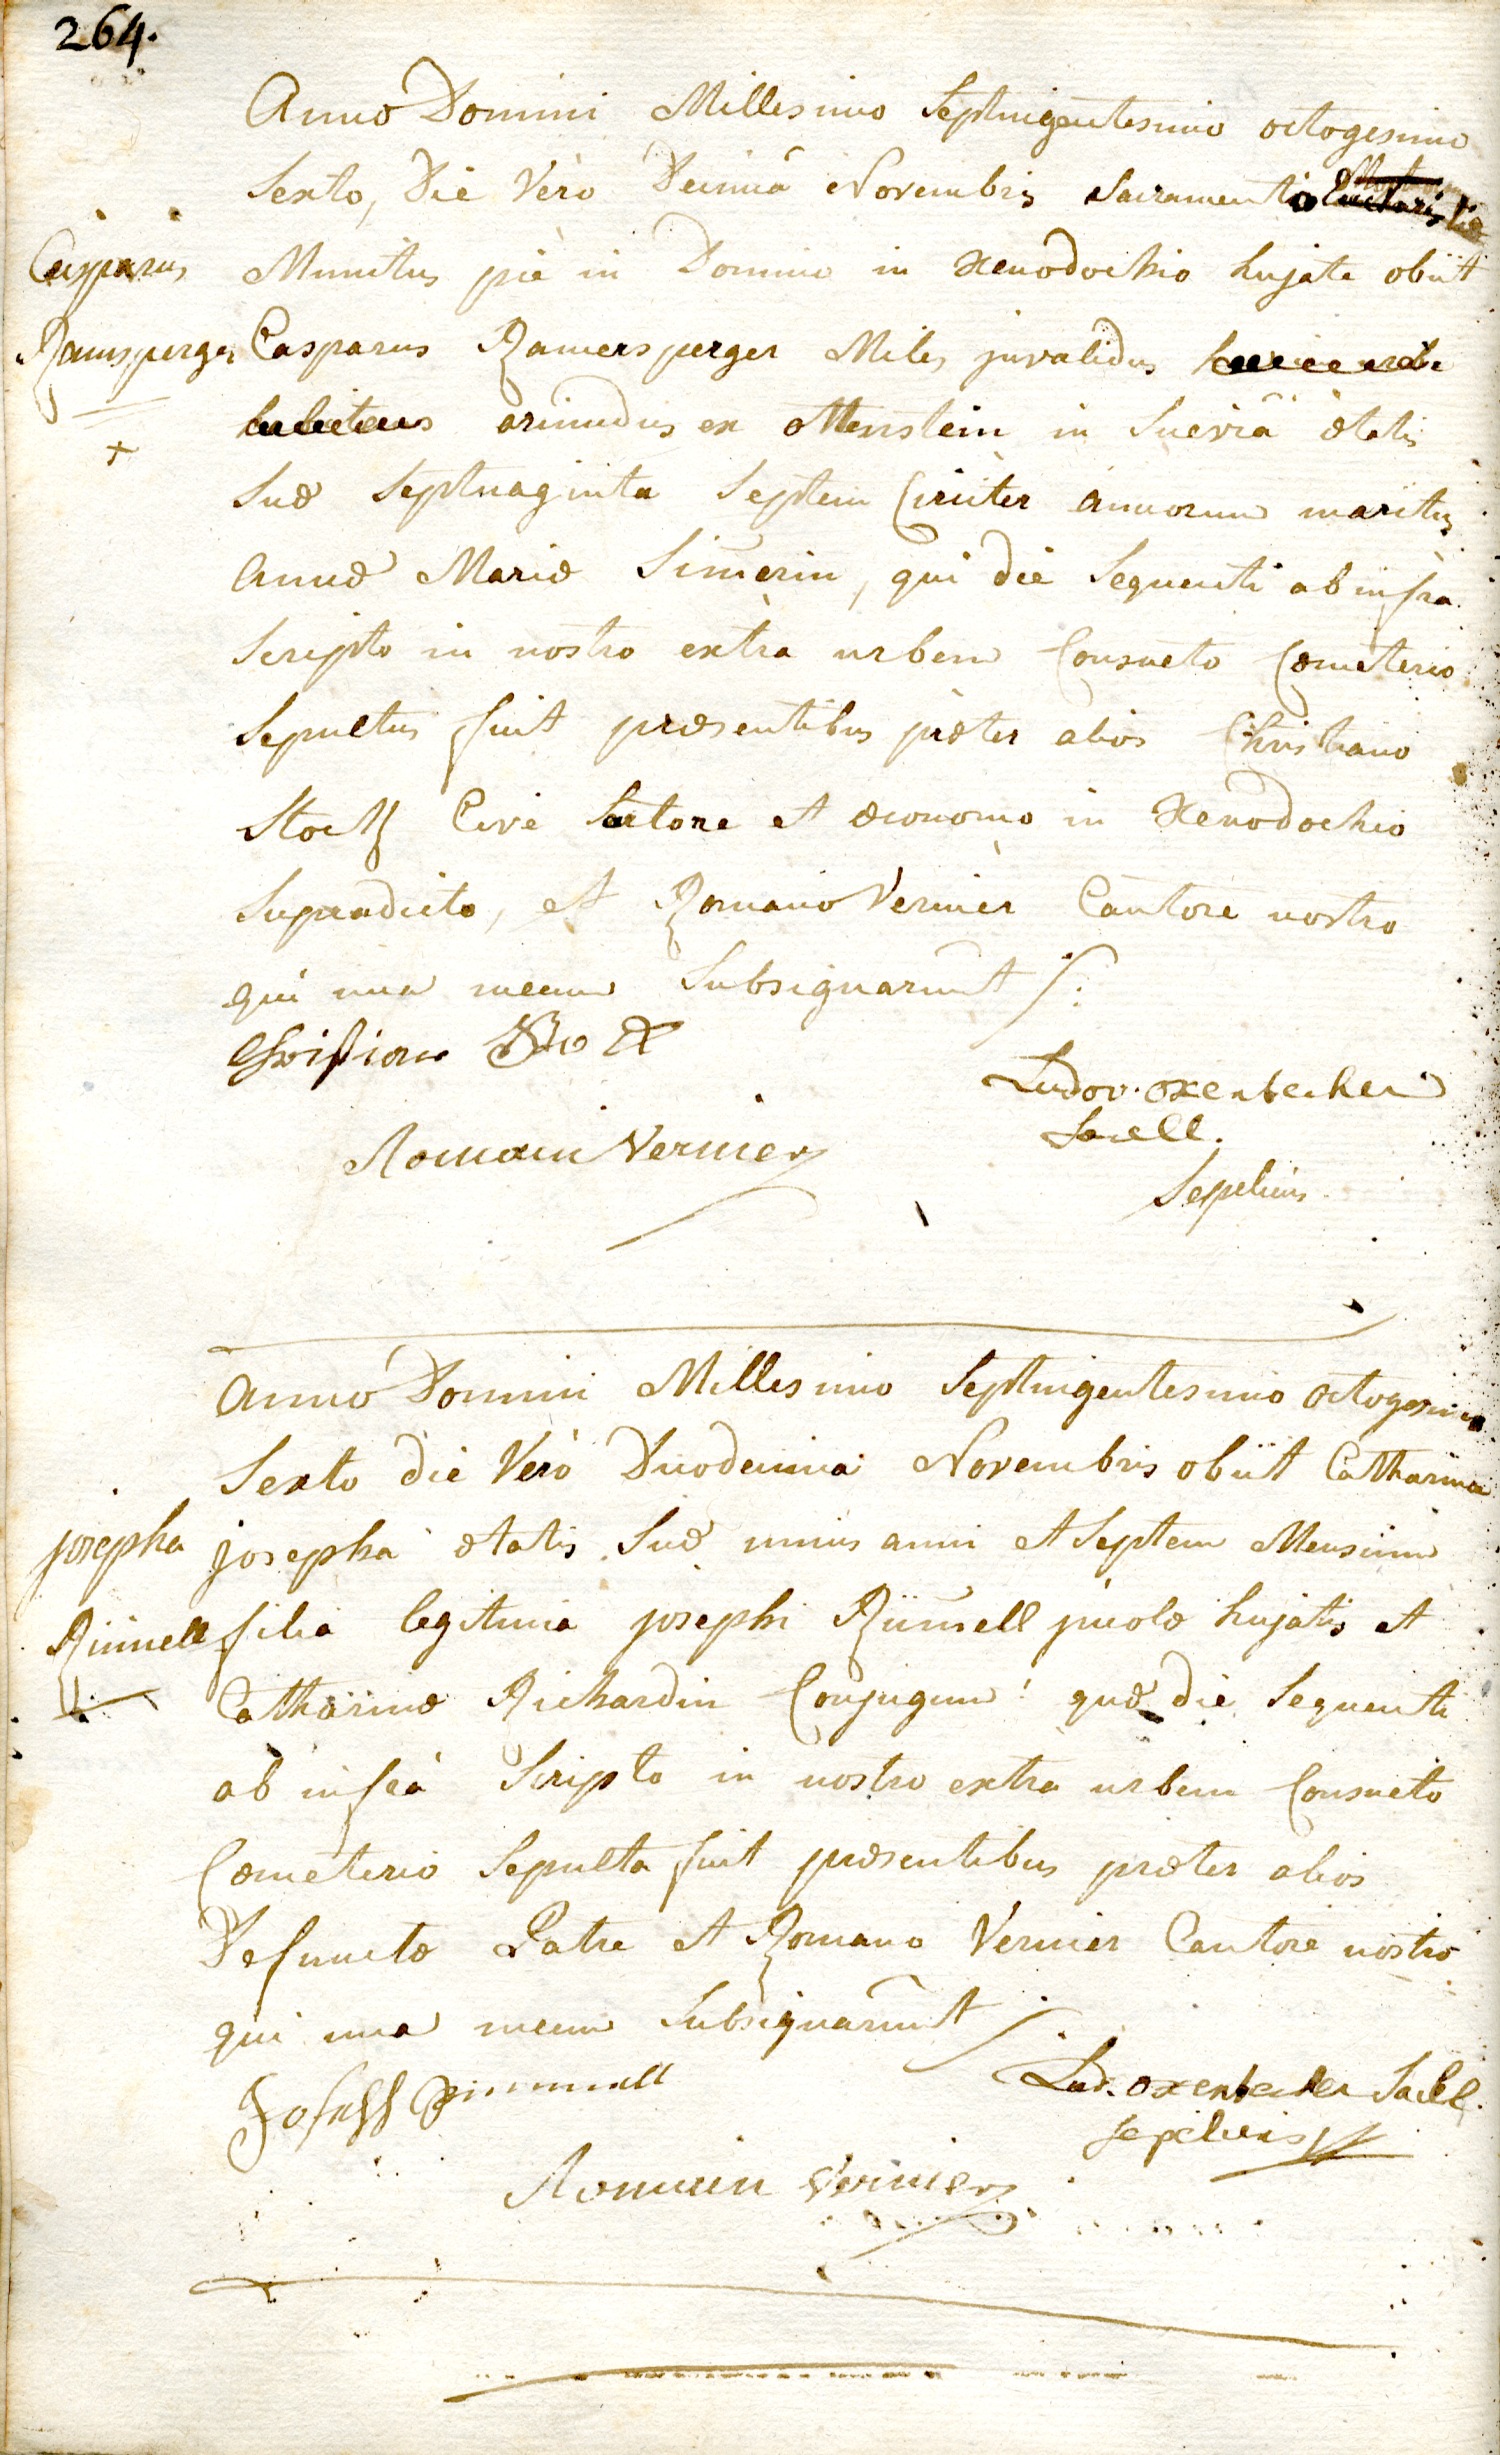 264.
Anno Domini Millesimo Septingentesimo octogesimo
Sexto, Die Verò Decimâ Novembris Sacramento
Munitus piè in Domino in Xenodochio hujate obiit
Casparus
Ramsperger
Casparus Ramersperger Miles invalidus
oriundus ex ottenstein in Sueviâ ætatis
Suæ Septuaginta Septem Circiter annorum maritus
Annæ Mariæ Simerin, qui die Sequenti ab infra
Scripto in nostro extra urbem Consueto Cæmeterio
Sepultus fuit præsentibus præter alios Christiano
Stock Cive Sartore et œconomo in Xenodochio
Supradicto, et Romano Vernier Cantore nostro
qui una mecum Subsignarunt
Christian
Ludov. oxenbecher
Romain Vernier
Sacell.
Sepeliens
Anno Domini Millesimo Septingentesimo octogesimo
Sexto die Verò Duodecima Novembris obiit Catharina
josepha
josepha ætatis Suæ unius anni et Septem Mensium
Rimmell
filia legitima josephi Rimmell incolæ hujatis et
Catharinæ Richardin Conjugum: quæ die Sequenti
ab infrà Scripto in nostro extra urbem Consueto
Cæmeterio Sepulta fuit præsentibus præter alios
Defunctæ Patre et Romano Vernier Cantore nostro
qui una mecum Subsignarunt
Joseph Rimmell
Lud. oxenbecher Sacell.
sepeliens
Romain Vernier